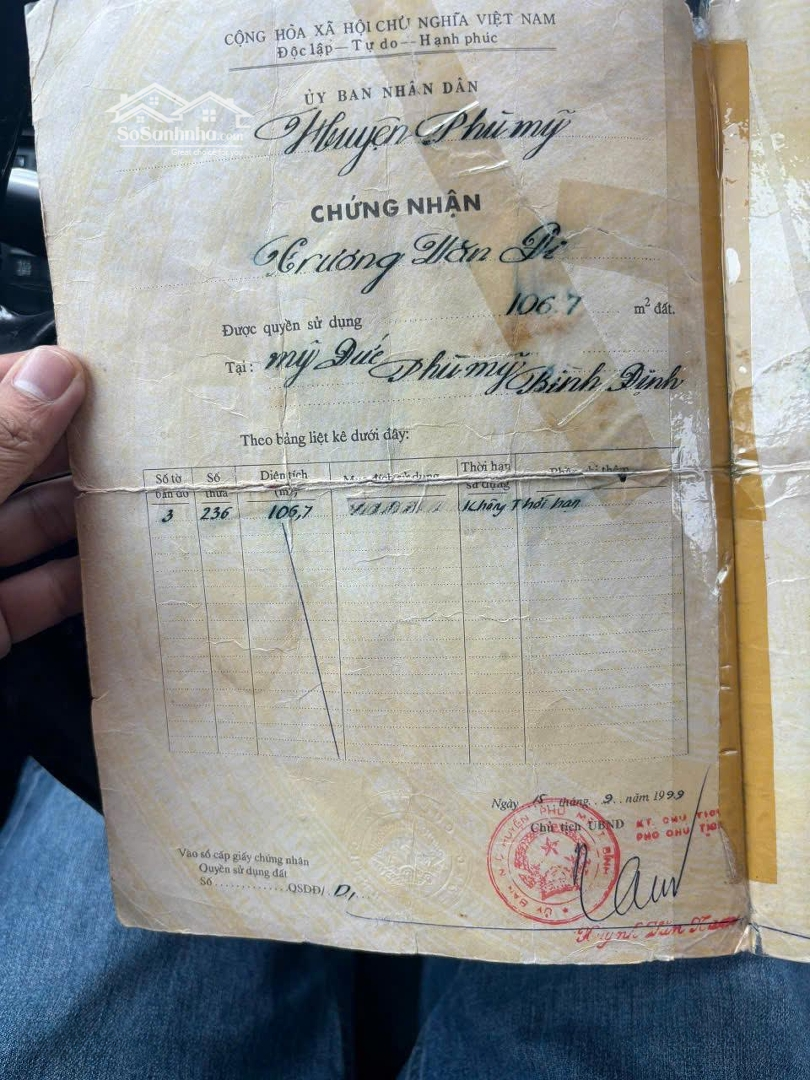 CỘNG HÒA XÃ HỘI CHỦ NGHĨA VIỆT NAM
Độc lập - Tự do - Hạnh phúc
ỦY BAN NHÂN DÂN
Huyện Phù mỹ
SoSanhnha.com
CHỨNG NHẬN
Trương Văn
106.7 m² đất.
Được quyền sử dụng
Tại: mỹ Đức Phù mỹ, Bình Định
Theo bảng liệt kê dưới đây:
Số tờ bản đồ Số thửa Diện tích (m²) Mục đích sử dụng Thời hạn sử dụng
3 236 106,7 Không Thời hạn
Ngày 15 tháng 9 năm 1999
Chủ tịch UBND KT. CHỦ TỊCH
PHÓ CHỦ TỊCH
Vào sổ cấp giấy chứng nhận
Quyền sử dụng đất
Số QSDĐ/ D1
Huỳnh Văn